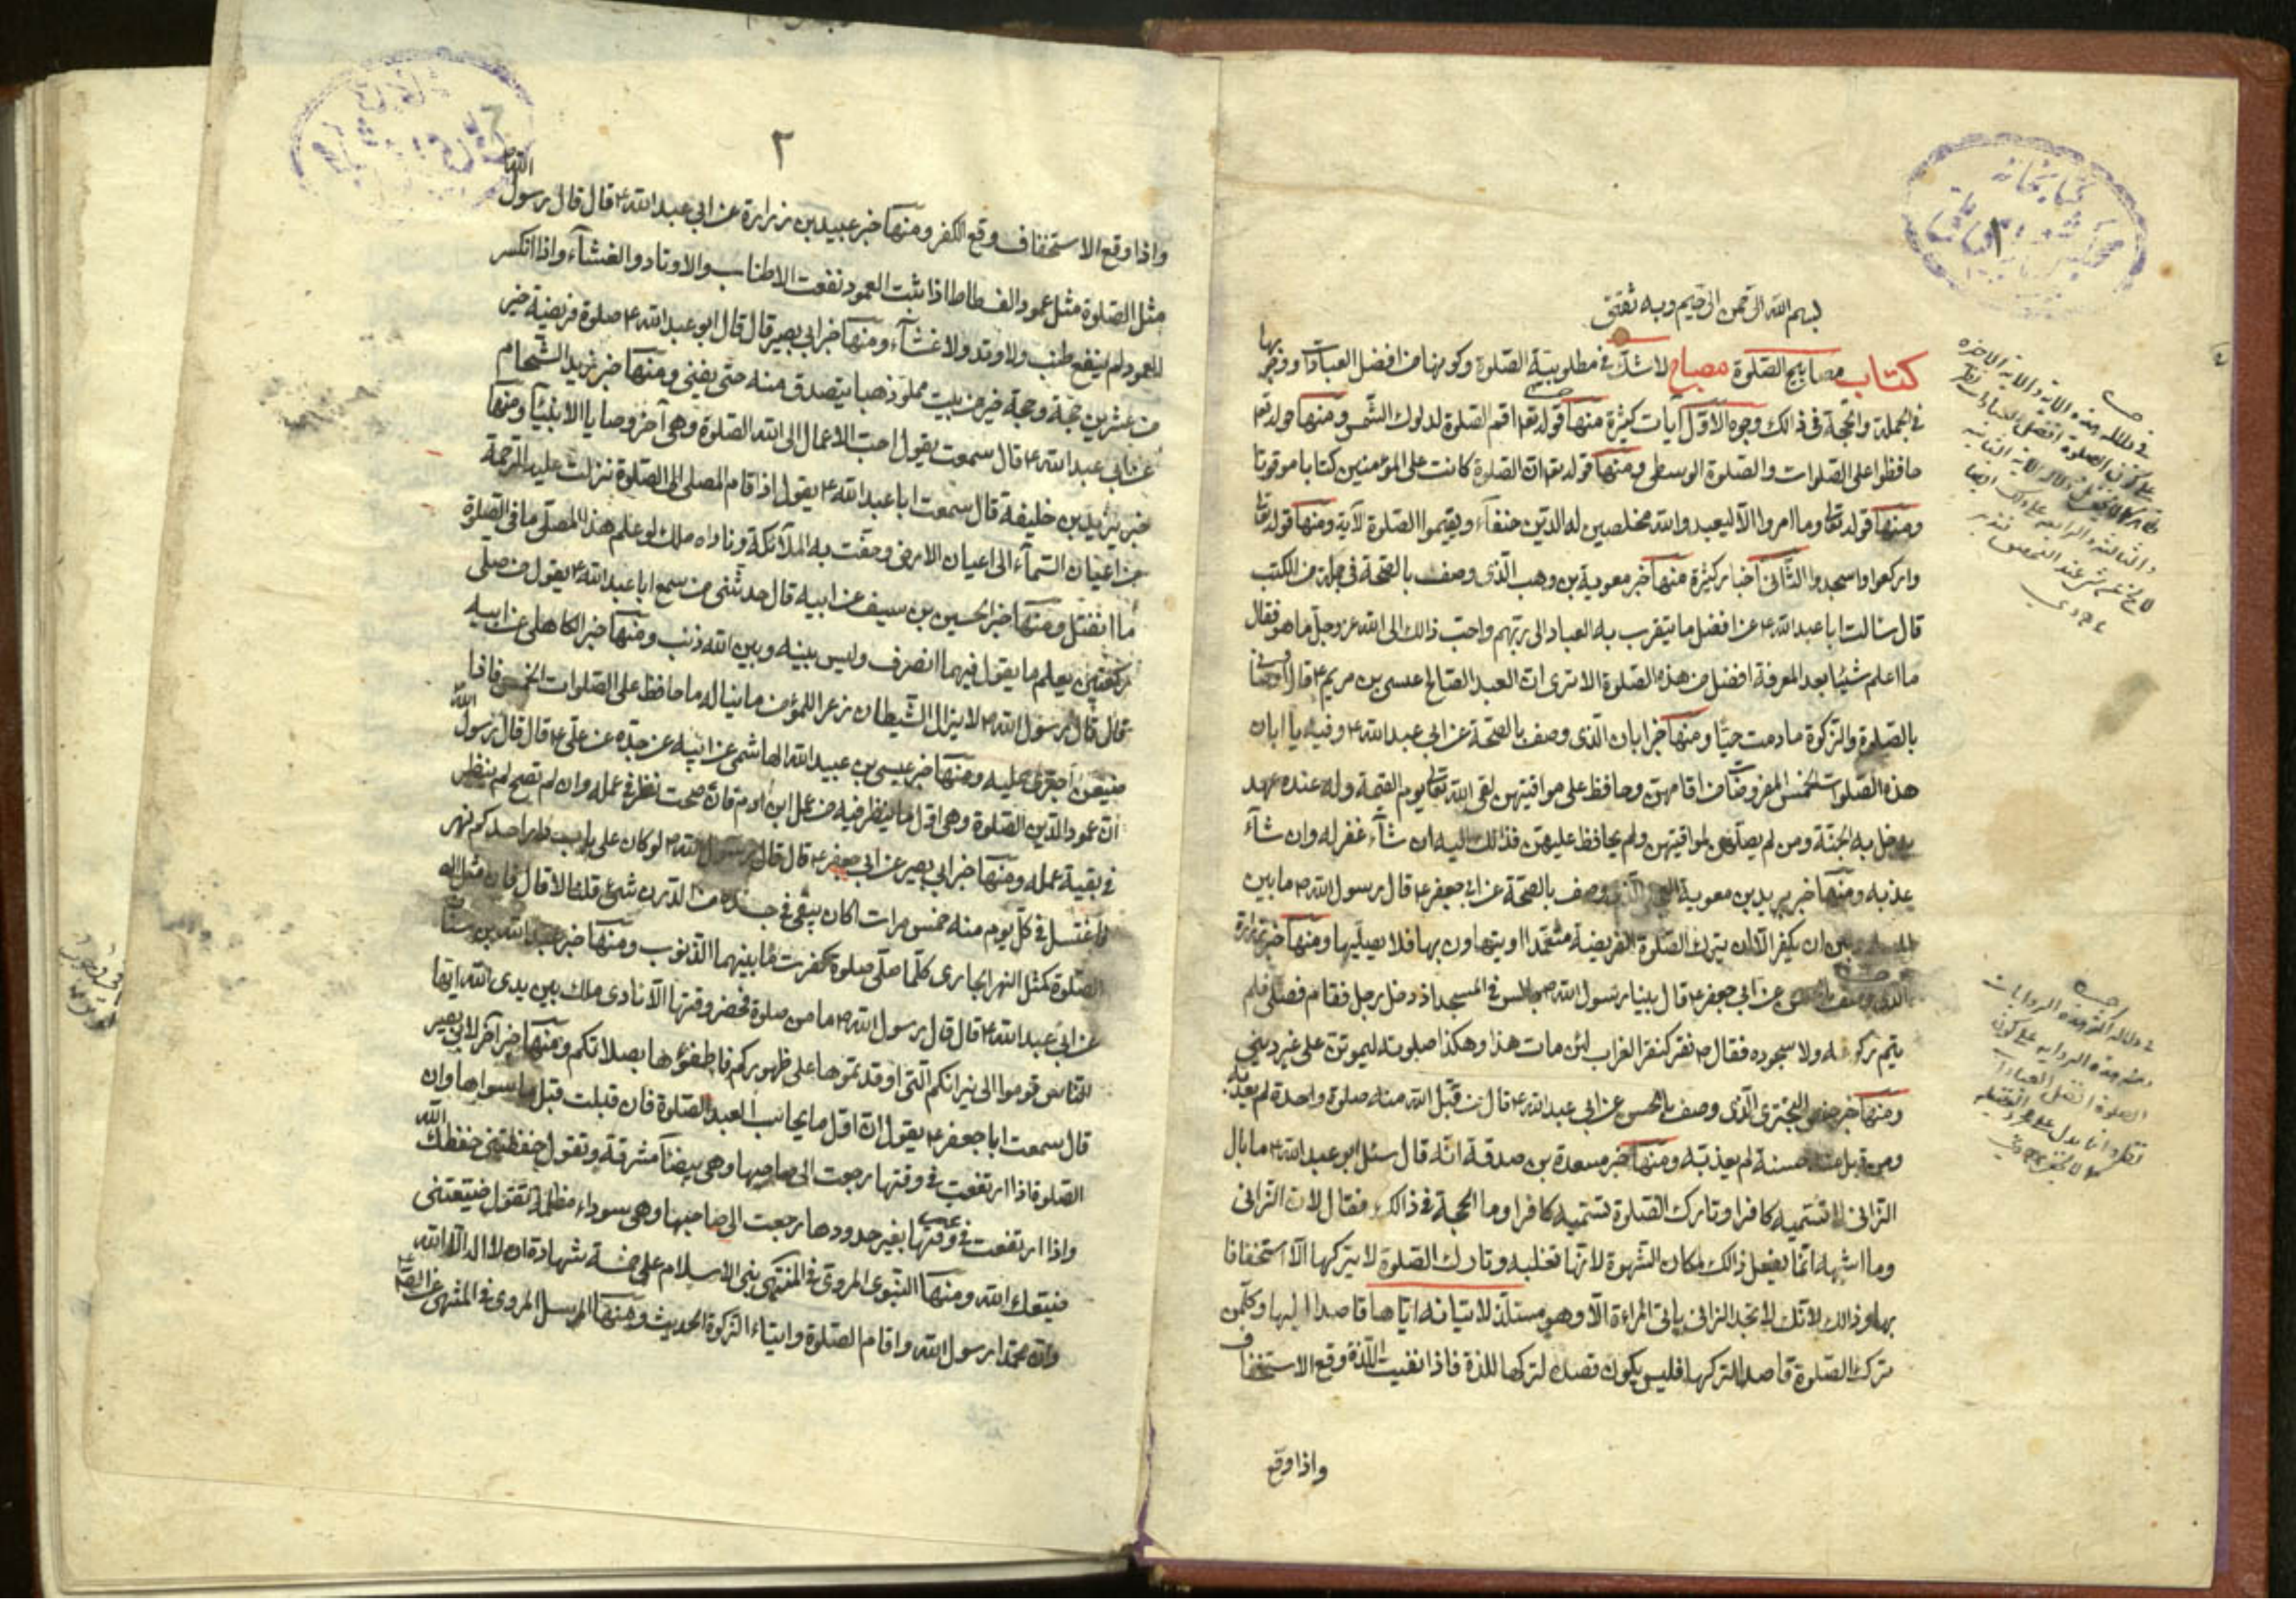 بسم الله الرحمن الرحيم وبه ثقتي
كتاب مصابيح الصلوة مصباح لا شك في مطلوبية الصلوة وكونها من افضل العبادات ووجوبها
في الجملة والحجة في ذالك وجوه الاول آيات كثيرة منها قوله تعالى اقم الصلوة لدلوك الشمس ومنها قوله تعالى
حافظوا على الصلوات والصلوة الوسطى ومنها قوله تعالى ان الصلوة كانت على المؤمنين كتابا موقوتا
ومنها قوله تعالى وما امروا الا ليعبدوا الله مخلصين له الدين حنفاء ويقيموا الصلوة الآية ومنها قوله تعالى
واركعوا واسجدوا الثاني اخبار كثيرة منها خبر معوية بن وهب الذي وصف بالصحة في جملة من الكتب
قال سالت ابا عبد الله ع عن افضل ما يتقرب به العباد الى ربهم واحب ذالك الى الله عز وجل ما هو فقال
ما اعلم شيئا بعد المعرفة افضل من هذه الصلوة الا ترى ان العبد الصالح عيسى بن مريم ع قال واوصاني
بالصلوة والزكوة ما دمت حيا ومنها خبر ابان الذي وصف بالصحة عن ابي عبد الله ع وفيه يا ابان
هذه الصلوات الخمس المفروضات من اقامهن وحافظ على مواقيتهن لقى الله تعالى يوم القيمة وله عنده عهد
يدخل به الجنة ومن لم يصلهن لمواقيتهن ولم يحافظ عليهن فذالك اليه ان شاء غفر له وان شاء
عذبه ومنها خبر بريد بن معوية وصف بالصحة عن ابي جعفر ع قال رسول الله ص ما بين
بين ان يكفر الا ان يترك الصلوة الفريضة متعمدا او يتهاون بها فلا يصليها ومنها خبر زرارة
عن ابي جعفر ع قال بينا رسول الله ص جالس في المسجد اذ دخل رجل فقام فصلى فلم
يتم ركوعه ولا سجوده فقال ص نقر كنقر الغراب لئن مات هذا وهكذا صلوته ليموتن على غير ديني
ومنها خبر حفص البختري الذي وصف بالحسن عن ابي عبد الله ع قال من قبل الله منه صلوة واحدة لم يعذبه
ومن قبل منه حسنة لم يعذبه ومنها خبر مسعدة بن صدقة انه قال سئل ابو عبد الله ع ما بال
الزاني لا تسميه كافرا وتارك الصلوة تسميه كافرا وما الحجة في ذالك فقال لان الزاني
وما اشبهه انما يفعل ذالك لمكان الشهوة لانها تغلبه وتارك الصلوة لا يتركها الا استخفافا
بها وذالك لانك لا تجد الزاني ياتي المراة الا وهو مستلذ لاتيانه اياها قاصدا اليها وكل من
ترك الصلوة قاصدا لتركها فليس يكون قصده لتركها للذة فاذا نفيت اللذة وقع الاستخفاف
واذا وقع
٢
واذا وقع الاستخفاف وقع الكفر ومنها خبر عبيد بن زرارة عن ابي عبد الله ع قال قال رسول الله ص
مثل الصلوة مثل عمود الفسطاط اذا ثبت العمود نفعت الاطناب والاوتاد والغشاء واذا انكسر
العمود لم ينفع طنب ولا وتد ولا غشاء ومنها خبر ابي بصير قال قال ابو عبد الله ع صلوة فريضة خير
من عشرين حجة وحجة خير من بيت مملو ذهبا يتصدق منه حتى يفنى ومنها خبر زيد الشحام
عن ابي عبد الله ع قال سمعت يقول احب الاعمال الى الله الصلوة وهي آخر وصايا الانبياء ومنها
خبر يزيد بن خليفة قال سمعت ابا عبد الله ع يقول اذا قام المصلي الى الصلوة نزلت عليه الرحمة
من اعيان السماء الى اعيان الارض وحفت به الملائكة وناداه ملك لو علم هذا المصلي ما في الصلوة
ما انفتل ومنها خبر الحسين بن سيف عن ابيه قال حدثني من سمع ابا عبد الله ع يقول من صلى
ركعتين يعلم ما يقول فيهما انصرف وليس بينه وبين الله ذنب ومنها خبر الكاهلي عن ابيه
قال قال رسول الله ص لا يزال الشيطان زعرا للمؤمن ما حافظ على الصلوات الخمس فاذا
ضيعهن اجترى عليه ومنها خبر عيسى بن عبيد الله الهاشمي عن ابيه عن جده عن علي ع قال قال رسول الله
ان عمود الدين الصلوة وهي اول ما ينظر فيه من عمل ابن آدم فان صحت نظر في عمله وان لم تصح لم ينظر
في بقية عمله ومنها خبر ابي بصير عن ابي جعفر ع قال قال رسول الله ص لو كان على باب دار احدكم نهر
واغتسل في كل يوم منه خمس مرات اكان يبقى في جسده من الدرن شيء قلت لا قال فان مثل
الصلوة كمثل النهر الجاري كلما صلى صلوة كفرت ما بينهما الذنوب ومنها خبر عبد الله بن سنان
عن ابي عبد الله ع قال قال رسول الله ص ما من صلوة تحضر وقتها الا نادى ملك بين يدي الله ايها
الناس قوموا الى نيرانكم التي اوقدتموها على ظهوركم فاطفؤها بصلاتكم ومنها خبر آخر لابي بصير
قال سمعت ابا جعفر ع يقول ان اول ما يحاسب العبد الصلوة فان قبلت قبل ما سواها وان
الصلوة اذا ارتفعت في وقتها رجعت الى صاحبها وهي بيضاء مشرقة وتقول حفظتني حفظك الله
واذا ارتفعت في غير وقتها بغير حدودها رجعت الى صاحبها وهي سوداء مظلمة تقول ضيعتني
ضيعك الله ومنها النبوي المروي في المنتهى بني الاسلام على خمسة شهادة ان لا اله الا الله
وان محمدا رسول الله واقام الصلوة وايتاء الزكوة الحديث ومنها المرسل المروي في المنتهى عن الصادق ع